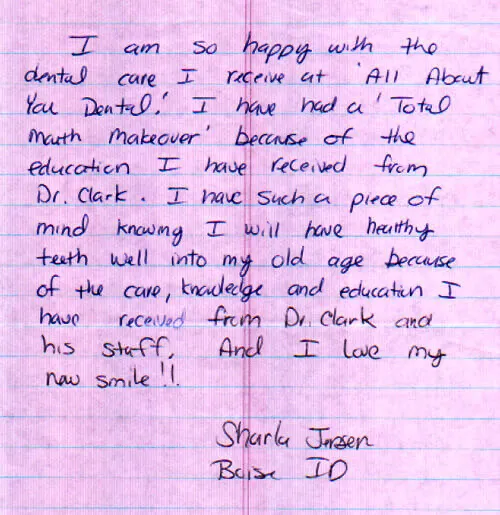 I am so happy with the
dental care I receive at 'All About
You Dental.' I have had a 'Total
mouth makeover' because of the
education I have received from
Dr. Clark. I have such a piece of
mind knowing I will have healthy
teeth well into my old age because
of the care, knowledge and education I
have received from Dr. Clark and
his staff. And I love my
new smile!!
Sharla Jensen
Boise ID